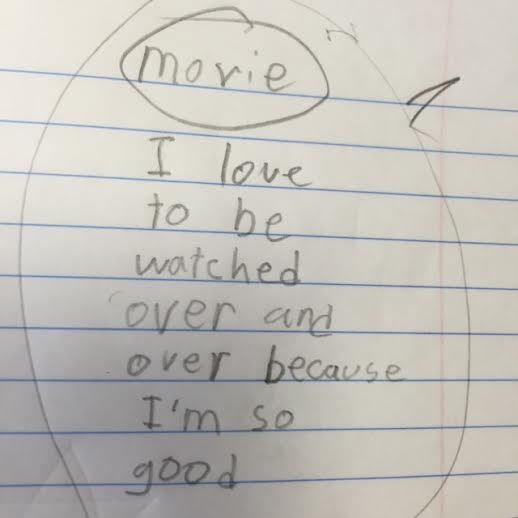 movie
I love
to be
watched
over and
over because
I'm so
good